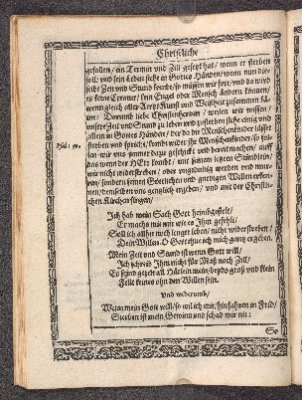 Christliche
gefallen / ein Termin und Ziel gesetzt hat / wenn er sterben
soll / und sein Leben steht in Gottes Händen / wenn nun die-
selbe Zeit und Stund kömbt / so müssen wir fort / und da wird
es keine Creatur / kein Engel oder Mensch ändern können /
wenn gleich aller Artzt Kunst und Weißheit zusammen
Demnach liebe Christenhertzen / weilen wir wissen /
unsere Zeit und Stund zu leben und zu sterben stehe einig und
allein in Gottes Händen / der da die Menschenkinder lässet
sterben und spricht / kombt wider ihr Menschenkinder / so sol-
len wir uns immer dazu geschickt und bereit machen / auff
das wenn der HErr kombt / mit seinem letzten Stündlein /
wir nicht widerstreben / oder ungedultig werden und mur-
ren / sondern seinen Göttlichen und gnedigen Willen erken-
nen / demselben uns genzlich ergeben / und mit der Christli-
chen Kirchen singen /
Ich hab mein Sach Gott heimgestellt /
Er machs mit mir wie es Ihm gefehlt /
Soll ich allhie noch lenger leben / nicht widerstreben /
Dein Willen O Gott thue ich mich gantz ergeben.
Mein Zeit und Stund ist wenn Gott will /
Ich schreib Ihm nicht für Maß noch Ziel /
Es seind gezelt all Härlein mein / beyde groß und klein
Fellt keines ohn den Willen sein.
Und wederumb /
Wenn mein Gott will / so wil ich mit / hinfahren in Fried /
Sterben ist mein Gewinn und schad mir nit:
So